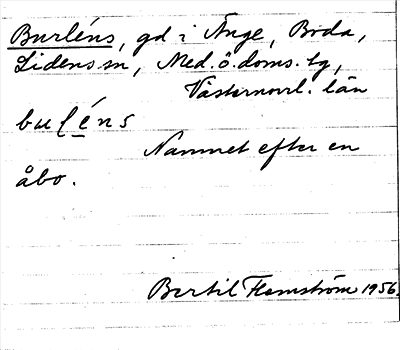 Burléns, gd i Ånge, Boda,
Lidens sn, Med. ö. doms. tg,
Västernorrl. län
buléns
Namnet efter en
åbo.
Bertil Flemström 1956.